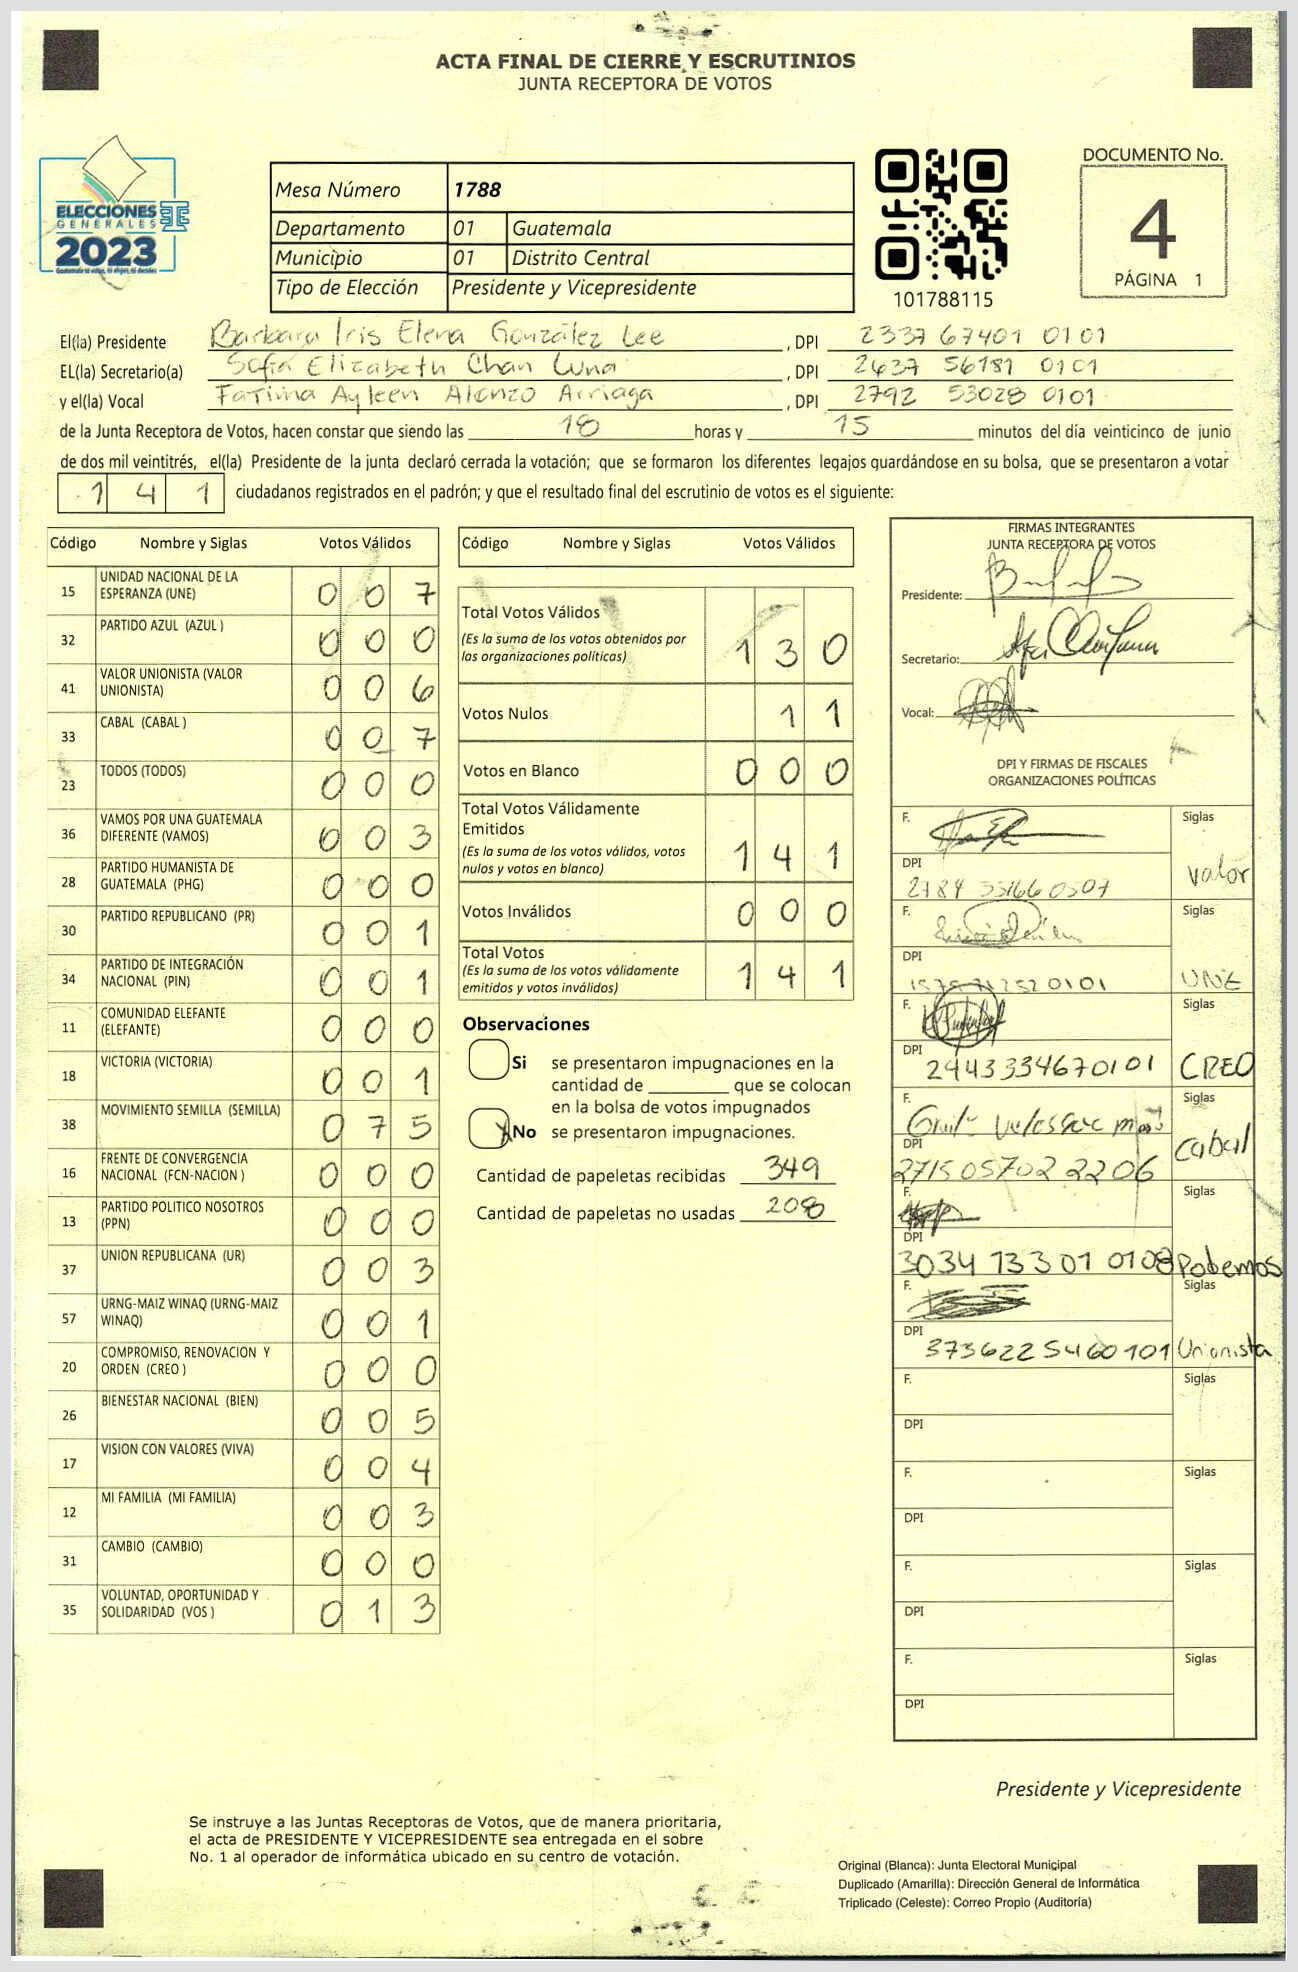 ACTA FINAL DE CIERRE Y ESCRUTINIOS
JUNTA RECEPTORA DE VOTOS
ELECCIONES
GENERALES
2023
Mesa Número 1788
Departamento 01 Guatemala
Municipio 01 Distrito Central
Tipo de Elección Presidente y Vicepresidente
101788115
DOCUMENTO No.
4
PÁGINA 1
El(la) Presidente Barbara Iris Elena González Lee , DPI 2337 67401 0101
EL(la) Secretario(a) Sofia Elizabeth Chan Luna , DPI 2637 56181 0101
y el(la) Vocal Fatima Ayleen Alonzo Arriaga , DPI 2792 53028 0101
de la Junta Receptora de Votos, hacen constar que siendo las 18 horas y 15 minutos del día veinticinco de junio
de dos mil veintitrés, el(la) Presidente de la junta declaró cerrada la votación; que se formaron los diferentes legajos guardándose en su bolsa, que se presentaron a votar
1 4 1 ciudadanos registrados en el padrón; y que el resultado final del escrutinio de votos es el siguiente:
Código Nombre y Siglas Votos Válidos
15 UNIDAD NACIONAL DE LA ESPERANZA (UNE) 0 0 7
32 PARTIDO AZUL (AZUL ) 0 0 0
41 VALOR UNIONISTA (VALOR UNIONISTA) 0 0 6
33 CABAL (CABAL ) 0 0 7
23 TODOS (TODOS) 0 0 0
36 VAMOS POR UNA GUATEMALA DIFERENTE (VAMOS) 0 0 3
28 PARTIDO HUMANISTA DE GUATEMALA (PHG) 0 0 0
30 PARTIDO REPUBLICANO (PR) 0 0 1
34 PARTIDO DE INTEGRACIÓN NACIONAL (PIN) 0 0 1
11 COMUNIDAD ELEFANTE (ELEFANTE) 0 0 0
18 VICTORIA (VICTORIA) 0 0 1
38 MOVIMIENTO SEMILLA (SEMILLA) 0 7 5
16 FRENTE DE CONVERGENCIA NACIONAL (FCN-NACION ) 0 0 0
13 PARTIDO POLITICO NOSOTROS (PPN) 0 0 0
37 UNION REPUBLICANA (UR) 0 0 3
57 URNG-MAIZ WINAQ (URNG-MAIZ WINAQ) 0 0 1
20 COMPROMISO, RENOVACION Y ORDEN (CREO ) 0 0 0
26 BIENESTAR NACIONAL (BIEN) 0 0 5
17 VISION CON VALORES (VIVA) 0 0 4
12 MI FAMILIA (MI FAMILIA) 0 0 3
31 CAMBIO (CAMBIO) 0 0 0
35 VOLUNTAD, OPORTUNIDAD Y SOLIDARIDAD (VOS ) 0 1 3
Código Nombre y Siglas Votos Válidos
Total Votos Válidos
(Es la suma de los votos obtenidos por
las organizaciones políticas) 1 3 0
Votos Nulos 1 1
Votos en Blanco 0 0 0
Total Votos Válidamente
Emitidos
(Es la suma de los votos válidos, votos
nulos y votos en blanco) 1 4 1
Votos Inválidos 0 0 0
Total Votos
(Es la suma de los votos válidamente
emitidos y votos inválidos) 1 4 1
Observaciones
Si se presentaron impugnaciones en la
cantidad de ________ que se colocan
en la bolsa de votos impugnados
No se presentaron impugnaciones.
Cantidad de papeletas recibidas 349
Cantidad de papeletas no usadas 208
FIRMAS INTEGRANTES
JUNTA RECEPTORA DE VOTOS
Presidente:
Secretario:
Vocal:
DPI Y FIRMAS DE FISCALES
ORGANIZACIONES POLÍTICAS
F. Siglas
DPI valor
F. Siglas
DPI UNE
F. Siglas
DPI 2443334670101 CREO
F. Siglas
DPI 2715 05702 2206 Cabal
F. Siglas
DPI 3034 13301 0108 Podemos
F. Siglas
DPI 3736225460101 Unionista
F. Siglas
DPI
F. Siglas
DPI
F. Siglas
DPI
F. Siglas
DPI
Presidente y Vicepresidente
Se instruye a las Juntas Receptoras de Votos, que de manera prioritaria,
el acta de PRESIDENTE Y VICEPRESIDENTE sea entregada en el sobre
No. 1 al operador de informática ubicado en su centro de votación.
Original (Blanca): Junta Electoral Municipal
Duplicado (Amarilla): Dirección General de Informática
Triplicado (Celeste): Correo Propio (Auditoría)